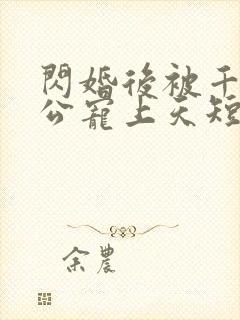 閃婚後被千
公寵上天短
余農